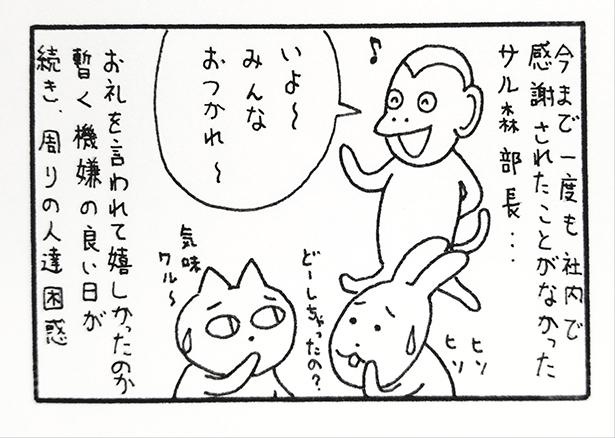 今まで一度も社内で
感謝されたことがなかった
サル森部長…
♪
いよ〜
みんな
おつかれ〜
ヒソ
ヒソ
どーしちゃったの?
気味
ワル〜
お礼を言われて嬉しかったのか
暫く機嫌の良い日が
続き、周りの人達困惑